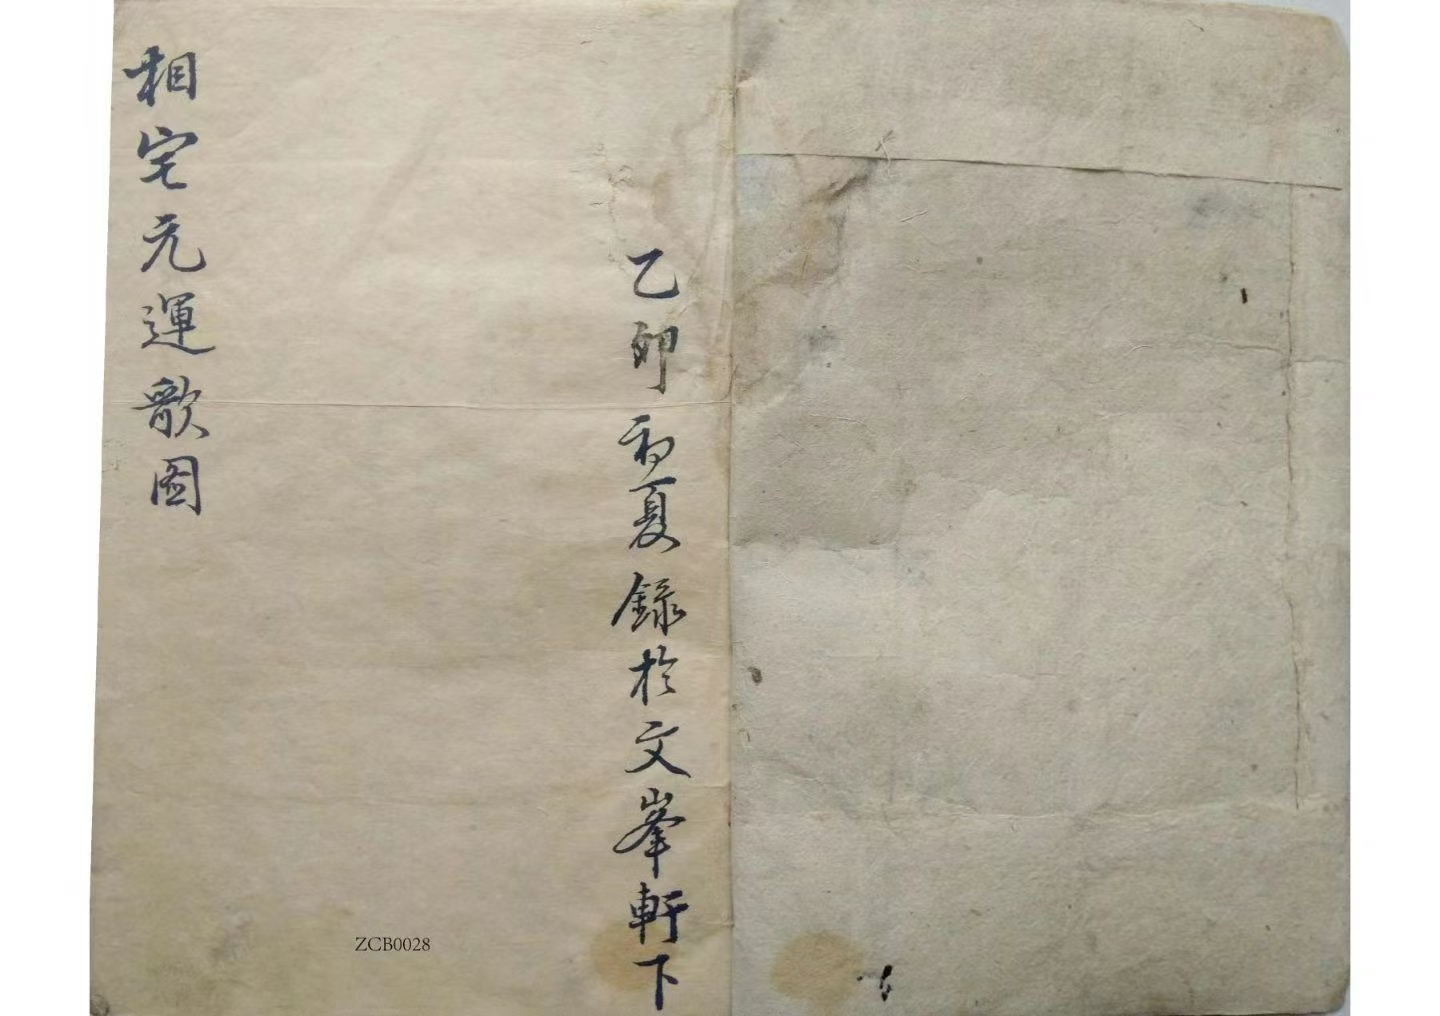 乙卯初夏錄於文峯軒下
相宅元運歌圖
ZCB0028